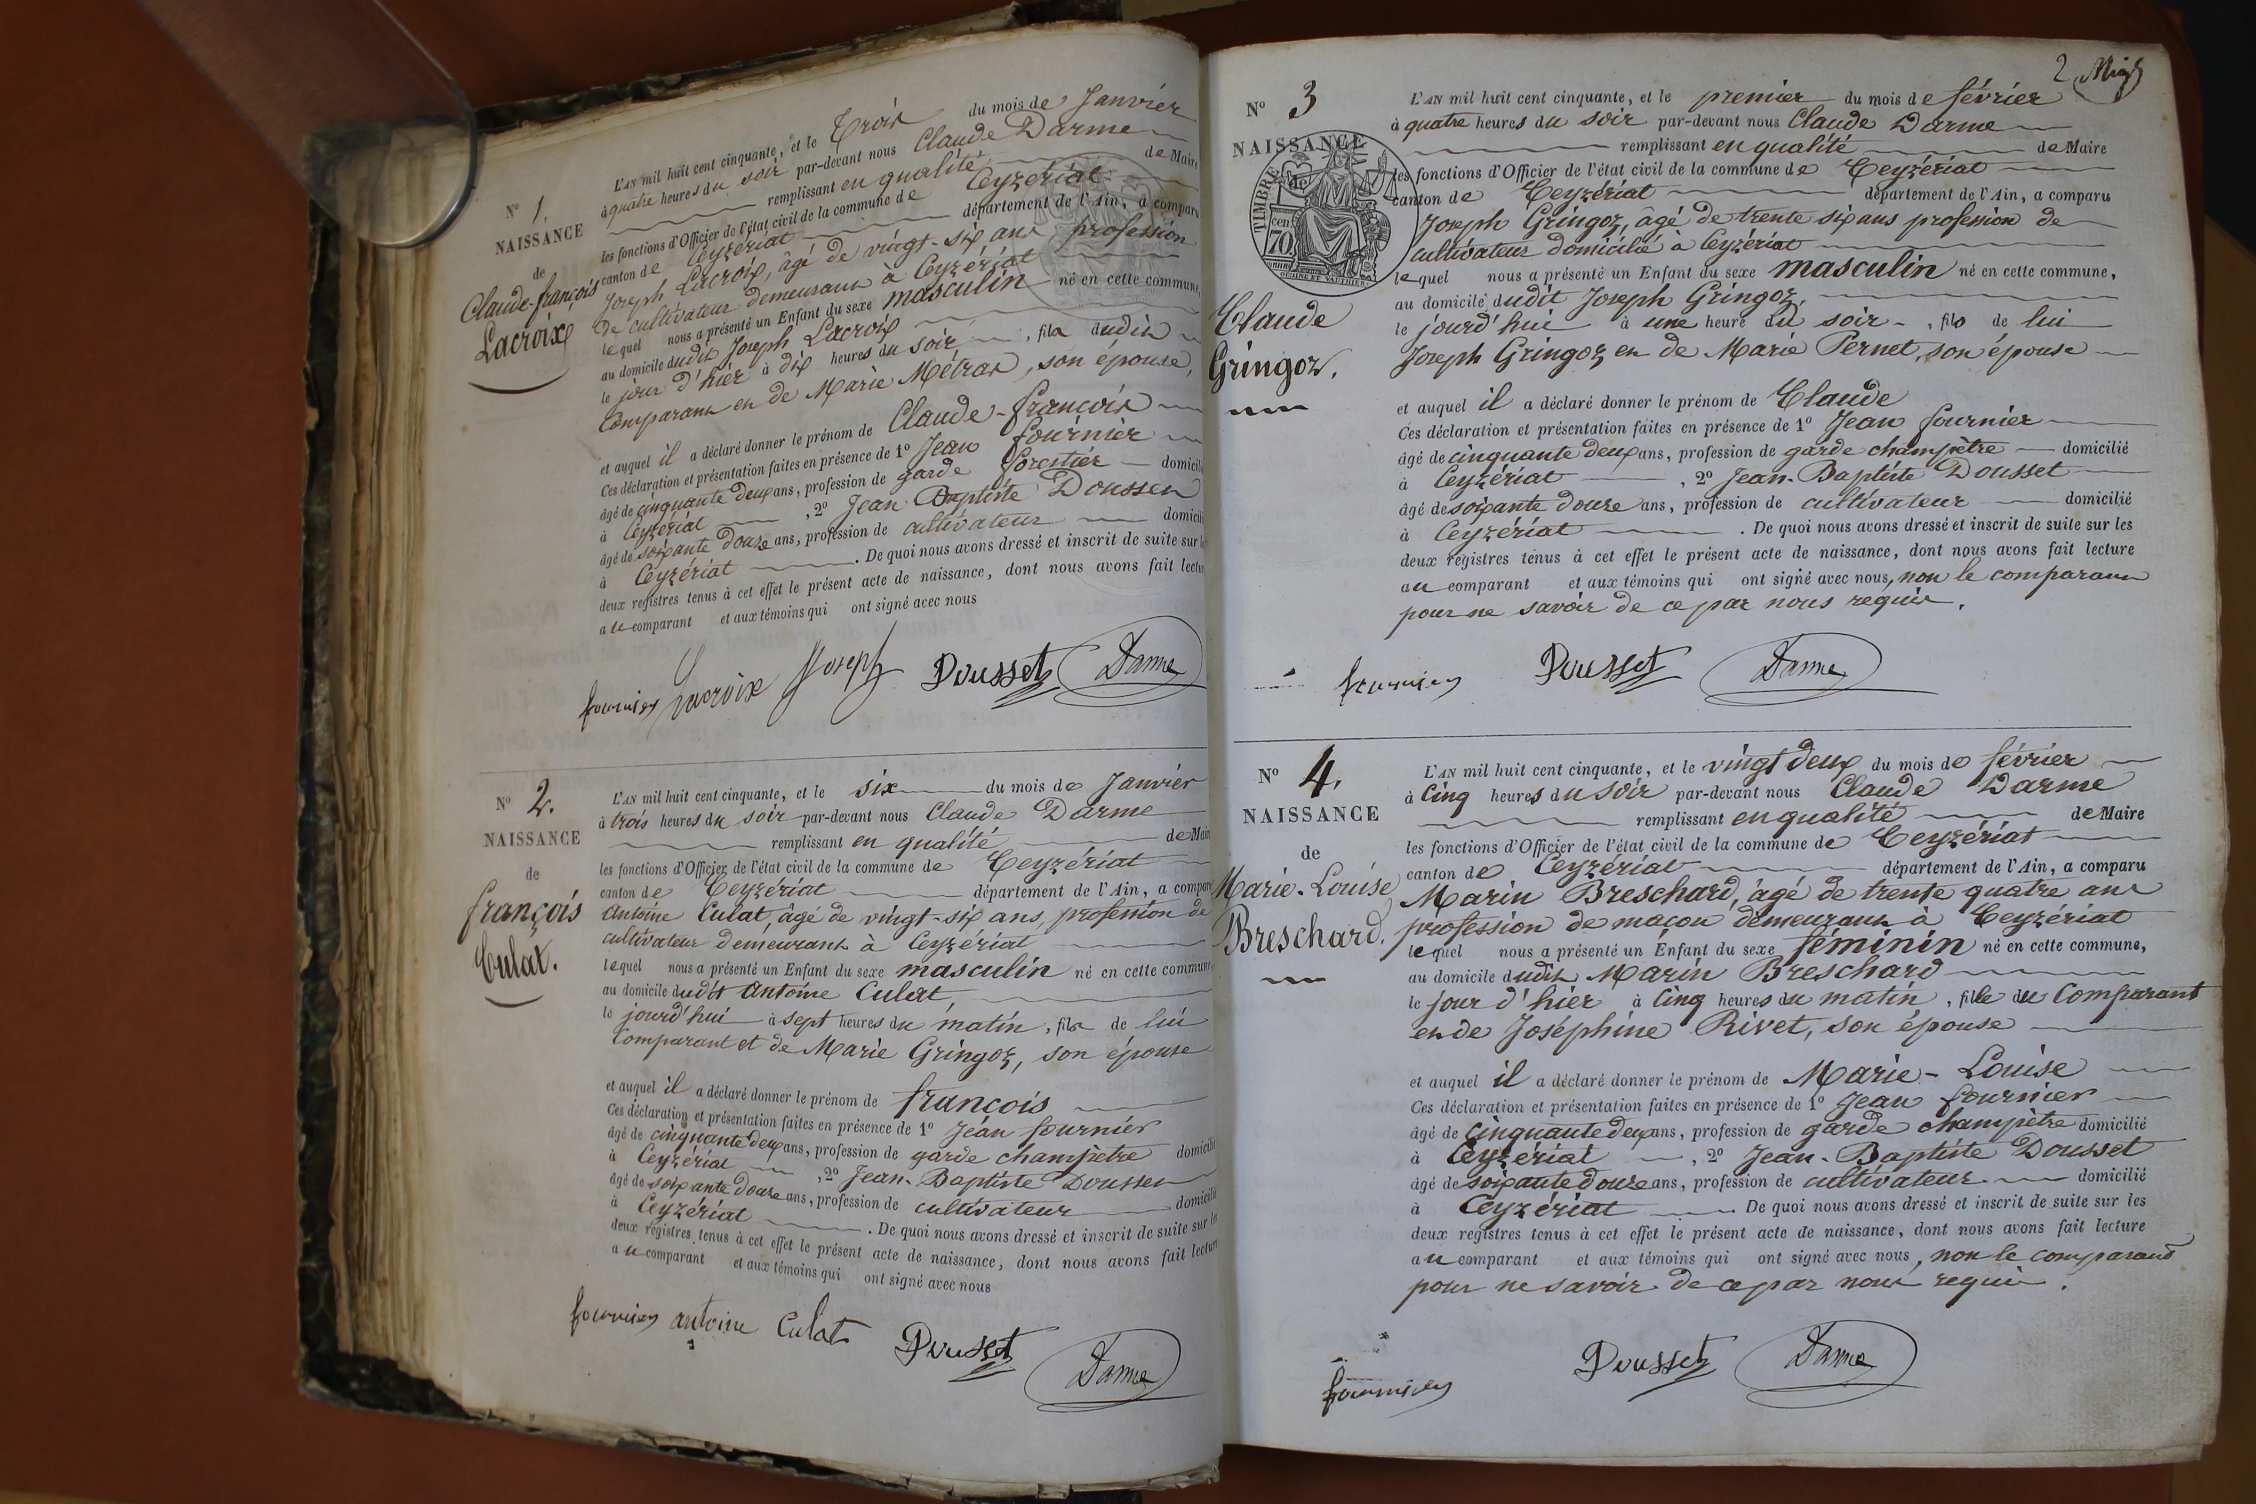 L'AN mil huit cent cinquante, et le Trois du mois de Janvier
à quatre heures du soir par-devant nous Claude Darme
remplissant en qualité de Maire
les fonctions d'Officier de l'état civil de la commune de Ceyzériat
canton de Ceyzériat département de l'Ain, a comparu
Joseph Lacroix, âgé de vingt-six ans profession
de cultivateur demeurant à Ceyzériat
lequel nous a présenté un Enfant du sexe masculin né en cette commune,
au domicile dudit Joseph Lacroix
le jour d'hier à dix heures du soir, fils dudit
Comparant et de Marie Métras, son épouse,
et auquel il a déclaré donner le prénom de Claude-françois
Ces déclaration et présentation faites en présence de 1° Jean fournier
âgé de cinquante deux ans, profession de garde forestier domicilié
à Ceyzériat, 2° Jean Baptiste Dousset
âgé de soixante douze ans, profession de cultivateur domicilié
à Ceyzériat. De quoi nous avons dressé et inscrit de suite sur les
deux registres tenus à cet effet le présent acte de naissance, dont nous avons fait lecture
au comparant et aux témoins qui ont signé avec nous
N° 1.
NAISSANCE
de
Claude-françois
Lacroix
fournier Lacroix Joseph Dousset Darme
N° 2.
NAISSANCE
de
françois
Culat.
L'AN mil huit cent cinquante, et le six du mois de Janvier
à trois heures du soir par-devant nous Claude Darme
remplissant en qualité de Maire
les fonctions d'Officier de l'état civil de la commune de Ceyzériat
canton de Ceyzériat département de l'Ain, a comparu
Antoine Culat, âgé de vingt-six ans, profession de
cultivateur demeurant à Ceyzériat
lequel nous a présenté un Enfant du sexe masculin né en cette commune
au domicile dudit Antoine Culat,
le jourd'hui à sept heures du matin, fils de lui
Comparant et de Marie Gringoz, son épouse
et auquel il a déclaré donner le prénom de françois
Ces déclaration et présentation faites en présence de 1° Jean fournier
âgé de cinquante deux ans, profession de garde champêtre domicilié
à Ceyzériat, 2° Jean-Baptiste Dousset
âgé de soixante douze ans, profession de cultivateur domicilié
à Ceyzériat. De quoi nous avons dressé et inscrit de suite sur les
deux registres tenus à cet effet le présent acte de naissance, dont nous avons fait lecture
au comparant et aux témoins qui ont signé avec nous
fournier antoine Culat Dousset Darme
2
N° 3
NAISSANCE
TIMBRE
de
cen
70
Claude
Gringoz.
L'AN mil huit cent cinquante, et le premier du mois de février
à quatre heures du soir par-devant nous Claude Darme
remplissant en qualité de Maire
les fonctions d'Officier de l'état civil de la commune de Ceyzériat
canton de Ceyzériat département de l'Ain, a comparu
Joseph Gringoz, âgé de trente six ans profession de
cultivateur domicilié à Ceyzériat
lequel nous a présenté un Enfant du sexe masculin né en cette commune,
au domicile dudit Joseph Gringoz,
le jourd'hui à une heure du soir, fils de lui
Joseph Gringoz et de Marie Pernet, son épouse
et auquel il a déclaré donner le prénom de Claude
Ces déclaration et présentation faites en présence de 1° Jean fournier
âgé de cinquante deux ans, profession de garde champêtre domicilié
à Ceyzériat, 2° Jean-Baptiste Dousset
âgé de soixante douze ans, profession de cultivateur domicilié
à Ceyzériat. De quoi nous avons dressé et inscrit de suite sur les
deux registres tenus à cet effet le présent acte de naissance, dont nous avons fait lecture
au comparant et aux témoins qui ont signé avec nous, non le comparant
pour ne savoir de ce par nous requis.
fournier Dousset Darme
N° 4.
NAISSANCE
de
Marie-Louise
Breschard.
L'AN mil huit cent cinquante, et le vingt deux du mois de février
à cinq heures du soir par-devant nous Claude Darme
remplissant en qualité de Maire
les fonctions d'Officier de l'état civil de la commune de Ceyzériat
canton de Ceyzériat département de l'Ain, a comparu
Marin Breschard, âgé de trente quatre ans
profession de maçon demeurant à Ceyzériat
lequel nous a présenté un Enfant du sexe féminin né en cette commune,
au domicile dudit Marin Breschard
le jour d'hier à cinq heures du matin, fille du Comparant
et de Joséphine Rivet, son épouse
et auquel il a déclaré donner le prénom de Marie-Louise
Ces déclaration et présentation faites en présence de 1° Jean fournier
âgé de cinquante deux ans, profession de garde champêtre domicilié
à Ceyzériat, 2° Jean-Baptiste Dousset
âgé de soixante douze ans, profession de cultivateur domicilié
à Ceyzériat. De quoi nous avons dressé et inscrit de suite sur les
deux registres tenus à cet effet le présent acte de naissance, dont nous avons fait lecture
au comparant et aux témoins qui ont signé avec nous, non le comparant
pour ne savoir de ce par nous requis.
fournier Dousset Darme